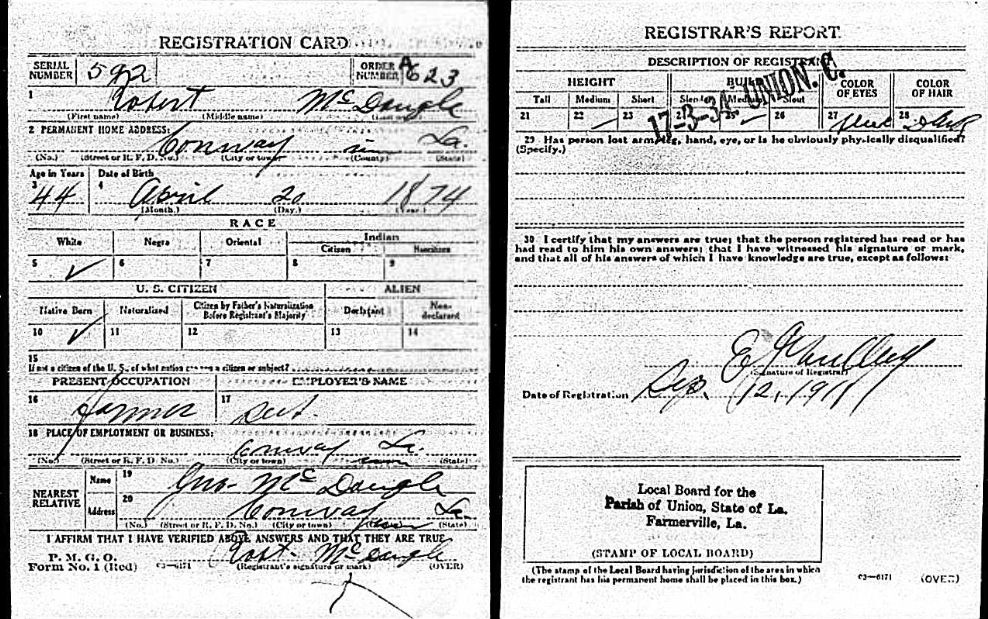 REGISTRATION CARD
SERIAL NUMBER 592 ORDER NUMBER A623
1 Robert McDougle
(First name) (Middle name) (Last name)
2 PERMANENT HOME ADDRESS:
Conway La.
(No.) (Street or R. F. D. No.) (City or town) (County) (State)
Age in Years Date of Birth
3 44 4 April 20 1874
(Month.) (Day.) (Year.)
RACE
White Negro Oriental Indian
Citizen Noncitizen
5 ✓ 6 7 8 9
U. S. CITIZEN ALIEN
Native Born Naturalized Citizen by Father's Naturalization Before Registrant's Majority Declarant Non-declarant
10 ✓ 11 12 13 14
15
If not a citizen of the U. S., of what nation are you a citizen or subject?
PRESENT OCCUPATION EMPLOYER'S NAME
16 Farmer 17
18 PLACE OF EMPLOYMENT OR BUSINESS:
Conway La.
(No.) (Street or R. F. D. No.) (City or town) (State)
NEAREST RELATIVE
Name 19 McDougle
Address 20 Conway La.
(No.) (Street or R. F. D. No.) (City or town) (State)
I AFFIRM THAT I HAVE VERIFIED ABOVE ANSWERS AND THAT THEY ARE TRUE
P. M. G. O.
Form No. 1 (Red) 03—6171 Robt. McDougle
(Registrant's signature or mark) (OVER)
REGISTRAR'S REPORT
DESCRIPTION OF REGISTRANT
HEIGHT BUILD COLOR OF EYES COLOR OF HAIR
Tall Medium Short Slender Medium Stout
21 22 ✓ 23 24 25 ✓ 26 27 28 Dark
17-3-34 UNION. C.
29 Has person lost arm, leg, hand, eye, or is he obviously physically disqualified?
(Specify.)
30 I certify that my answers are true; that the person registered has read or has
had read to him his own answers; that I have witnessed his signature or mark,
and that all of his answers of which I have knowledge are true, except as follows:
(Signature of Registrar)
Date of Registration Sep. 12, 191
Local Board for the
Parish of Union, State of La.
Farmerville, La.
(STAMP OF LOCAL BOARD)
(The stamp of the Local Board having jurisdiction of the area in which
the registrant has his permanent home shall be placed in this box.)
03—6171 (OVER)